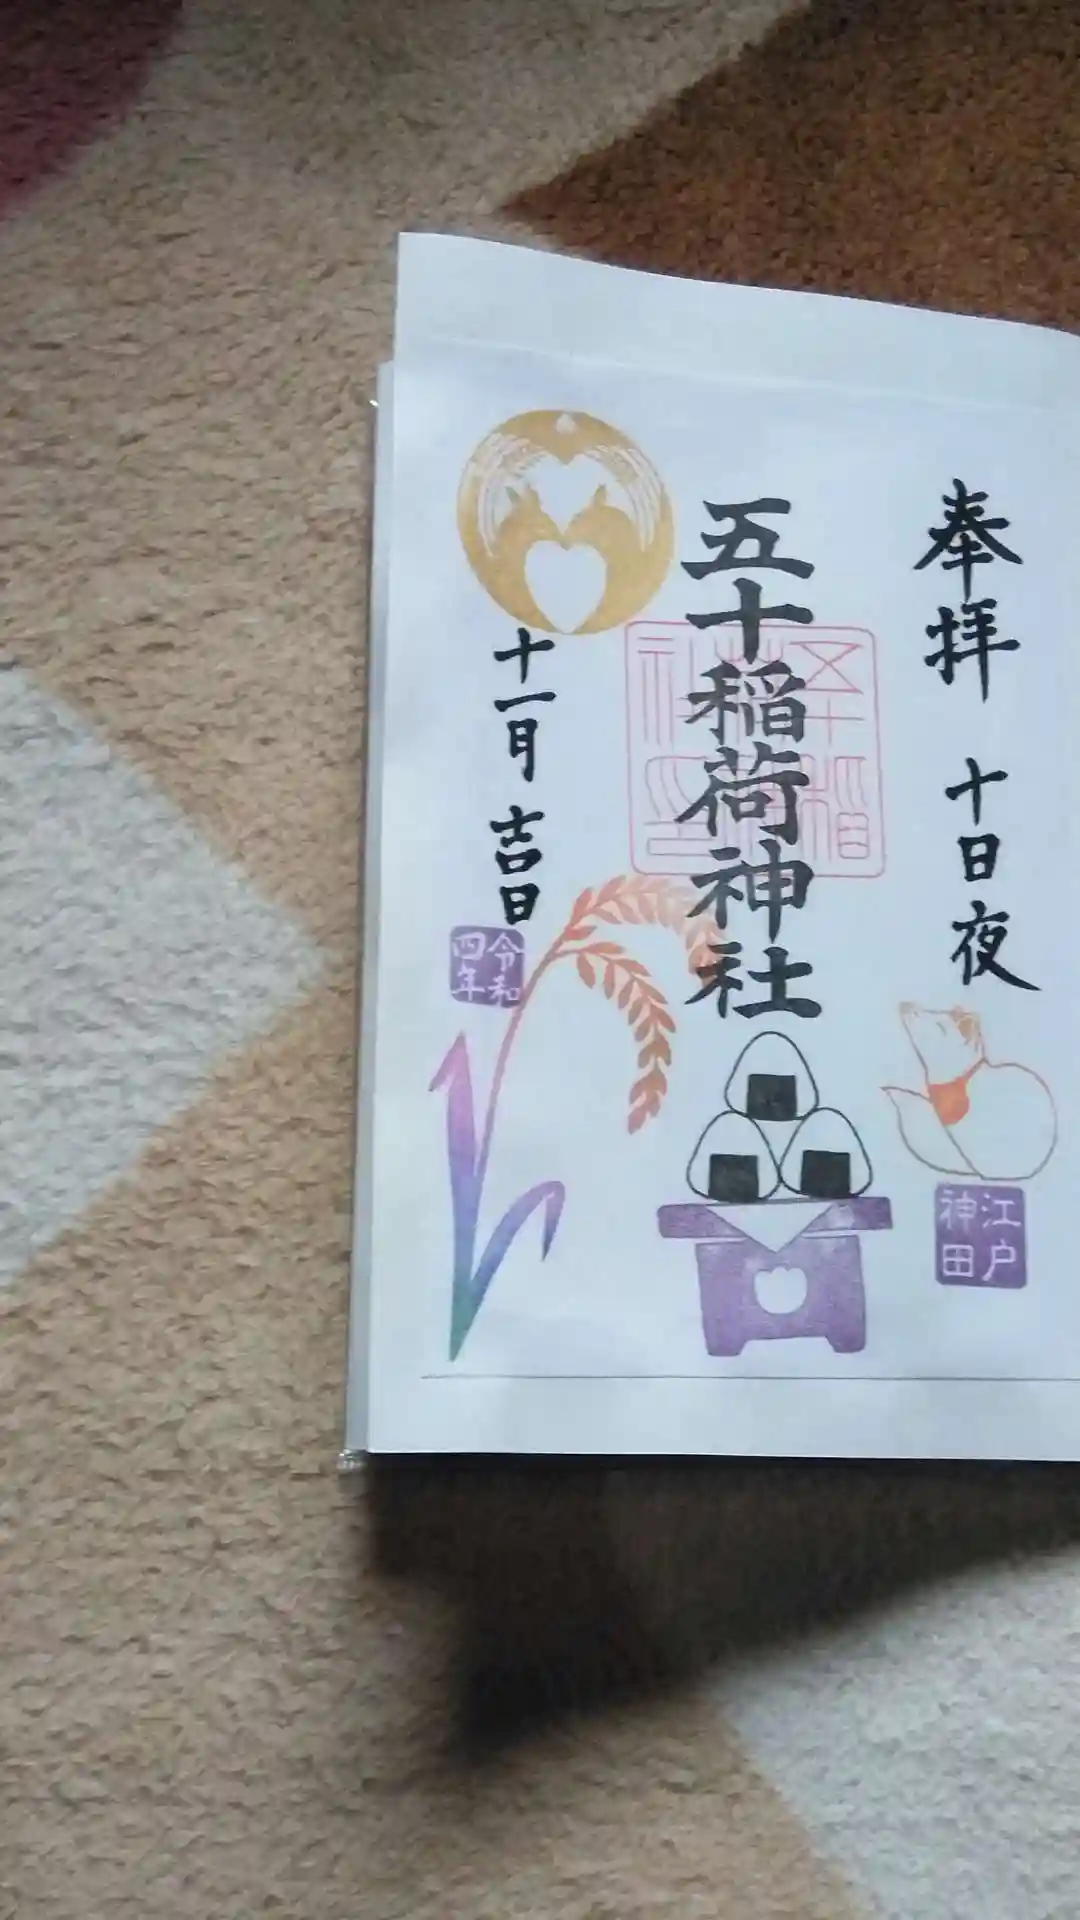 奉拝 十日夜
江戸
神田
五十稲荷神社
五十稲
荷神
社印
十一月 吉日
令和
四年